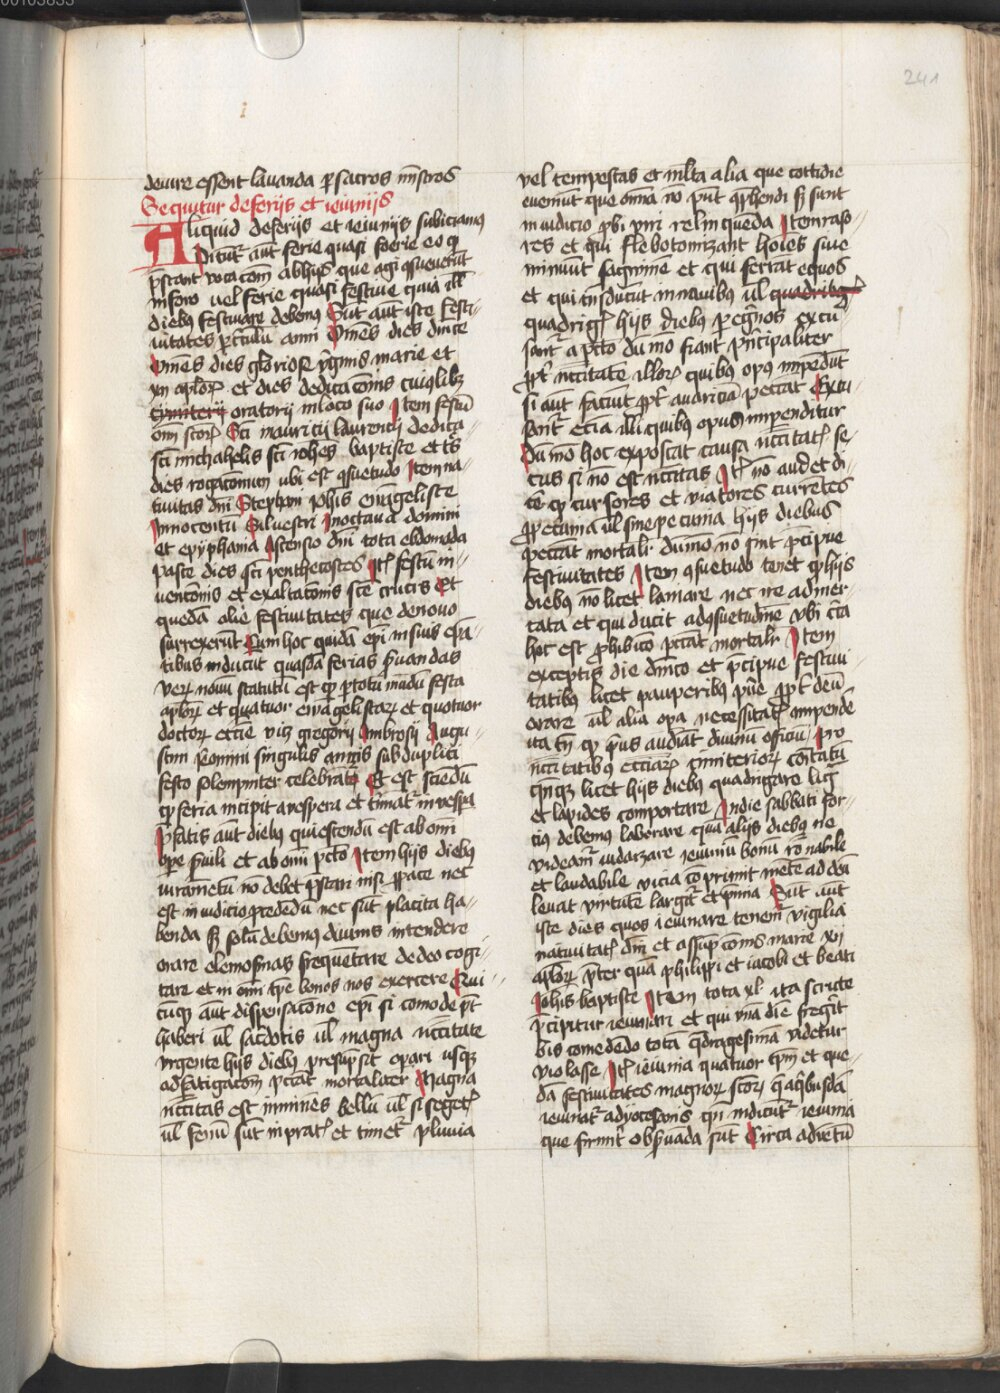 241
deuire essent lauanda per sacros ministros
Sequitur de ferijs et ieiunijs
Aliquid de ferijs et ieiunijs subiciamus
Dicitur autem ferie quasi foerie eo quod
prestant vocacionem ab hijs que agi consueuerunt
in foro vel ferie quasi festiue quia illis
diebus festiuare debemus Sunt autem iste festi-
uitates per circulum anni Omnes dies dominice
Omnes dies gloriose virginis marie et
xij aplorum et dies dedicacionis cuiuslibet
cymiterij oratorij in loco suo Item festum
omnium sctorum Sci mauricij laurencij dedica-
sci michahelis sci iohes baptiste et tres
dies rogacionum ubi est consuetudo Item na-
tiuitas dni Stephani iohis ewangeliste
Innocentum Siluestri in octaua domini
et epyphania Ascensio dni tota ebdomada
pasce dies sci penthecostes Item festum in-
uencionis et exaltacionis sce crucis Et
quedam alie festiuitates que denouo
surrexerunt Cum hoc quidam epi in suis epa-
tibus inducunt quasdam ferias seruandas
Verum nouum statutum est quod per totum mundum festa
aplorum et quatuor ewangelistarum et quatuor
doctorum eccie viz gregorij Ambrosij Augu-
stini Ieronimi singulis annis sub duplici
festo solempniter celebrentur Et est sciendum
quod feria incipit a vespera et terminatur in vespera
Prefatis autem diebus quiescendum est ab omni
opere seruili et ab omni peccato Item hijs diebus
iuramentum non debet prestari nisi pro pace nec
est in iudicio procedendum nec sunt placita ha-
benda sed solum debemus diuinis intendere
orare elemosinas frequentare de deo cogi-
tare et in omni tempore bonos nos exercere Qui-
cumque autem dispensacione epi si comode potest
haberi uel sacerdotis uel magna necessitate
vrgente hijs diebus presumpserit operari usque
ad fatigacionem peccat mortaliter Magna
necessitas est inminens bellum uel si segetes
uel fenum sunt in pratis et timetur pluuia
vel tempestas et multa alia que cottidie
eueniunt que omnia non possunt comprehendi sed sunt
in iudicio probi viri relinquenda Item raso-
res et qui flebotomizant homines siue
minuunt sagwine et qui ferrant equos
et qui transducunt in nauibus uel quadrigis
quadrigis hijs diebus peregrinos excu-
santur a peccato dummodo fiant principaliter
propter necessitatem illorum quibus opus impendunt
si autem faciunt propter auariciam peccant Excu-
santur eciam illi quibus opus impenditur
Dummodo hoc exposcat causa necessitatis se-
cus si non est necessitas Item non audet di-
cere quod cursores et viatores currentes
pro pecunia uel sine pecunia hijs diebus
peccant mortaliter dummodo non sint precipue
festiuitates Item consuetudo tenet quod hijs
diebus non licet laniare nec ire ad mer-
cata et qui ducit ad consuetudinem vbi circa
hoc est prohibicio peccat mortaliter Item
exceptis die dominico et precipue festiui-
tatibus licet pauperibus pure propter deum
orare uel alia opera necessitatis impendere
ita tamen quod prius audiant diuinum officium Pro
necessitatibus ecclesiarum cimiteriorum
quandoque licet hijs diebus quadrigare ligna
et lapides comportare In die sabbati for-
cius debemus laborare quam alijs diebus ne
videamur iudaizare ieiunium bonum racionabile
et laudabile vicia comprimit mentem ad deum
leuat virtutem largitur et premia Sunt autem
iste dies quos ieiunare tenemur vigilia
natiuitatis dni et assumpcionis marie xij
aplorum preter quam philippi et iacobi et beati
Iohis baptiste Item tota xl ita stricte
precipitur ieiunari et qui vnam diem fregerit
bis comedendo totam quadragesimam videtur
violasse Item ieiunia quatuor temporum et que-
dam festiuitates magnorum sctorum que a quibusdam
ieiunatur a dyocesanis quando indicuntur ieiunia
que firmiter obseruanda sunt Circa aduentum